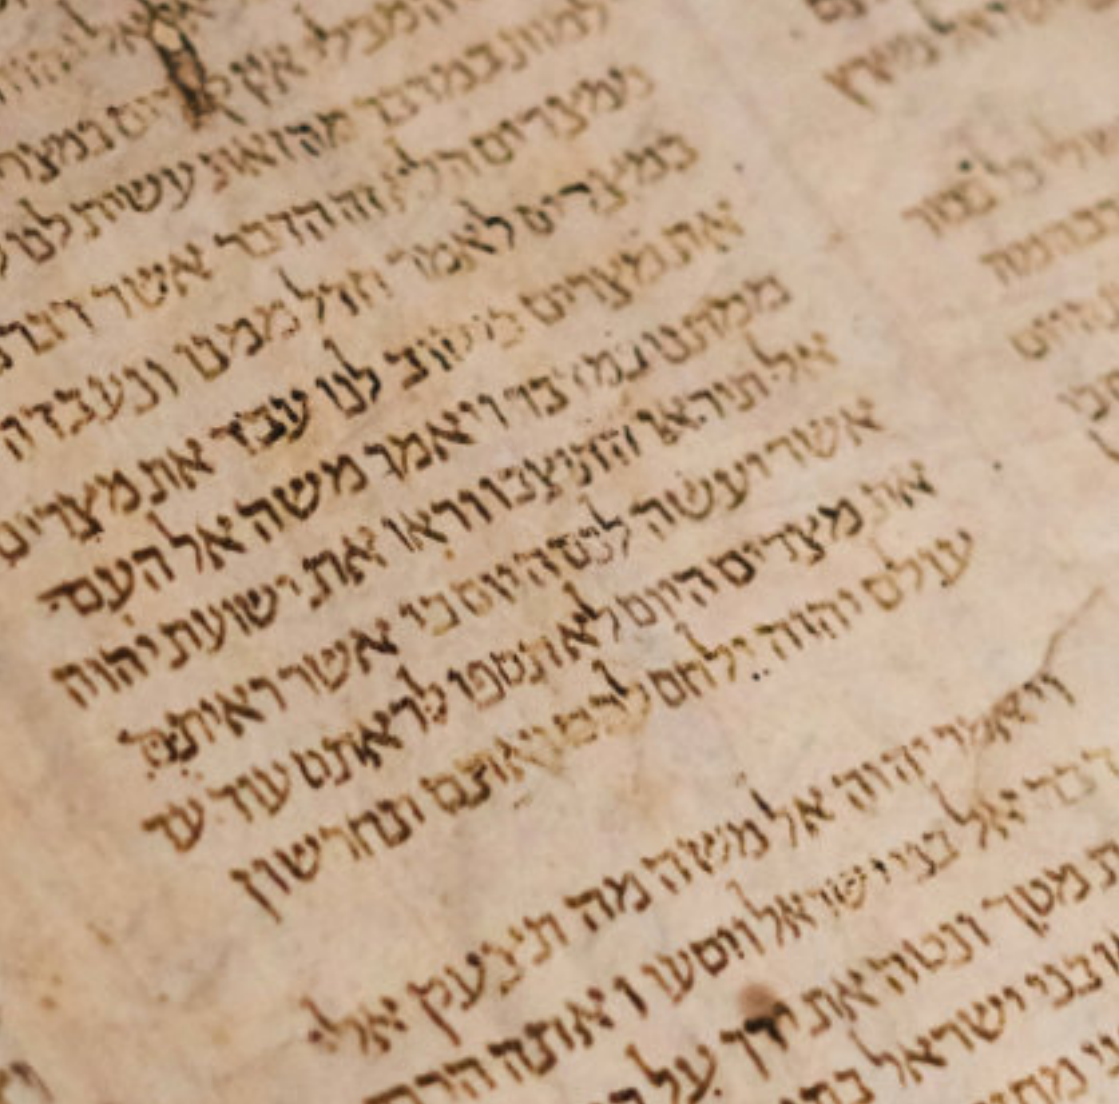 ישראל מארץ
כל בכור
בבהמה
אין במצרי
למות במדבר מה זאת עשית לנו
ממצרים הלא זה הדבר אשר דברנ
במצרים לאמר חדל ממנו ונעבדה
את מצרים כי טוב לנו עבד את מצרים
ממתנו במדבר ויאמר משה אל העם
אל תיראו התיצבו וראו את ישועת יהוה
אשר יעשה לכם היום כי אשר ראיתם
את מצרים היום לא תספו לראתם עוד עד
עולם יהוה ילחם לכם ואתם תחרשון
ויאמר יהוה אל משה מה תצעק אלי
דבר אל בני ישראל ויסעו ואתה הרם
מטך ונטה את ידך על
בני ישראל